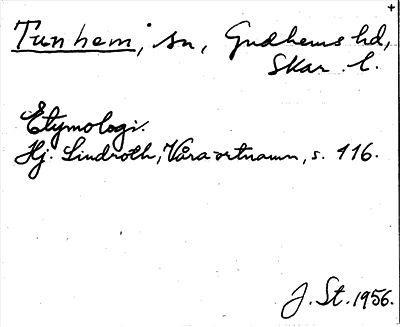 +
Tunhem, sn, Gudhems hd,
Skar. l.
Etymologi.
Hj. Lindroth, Våra ortnamn, s. 116.
J. St. 1956.